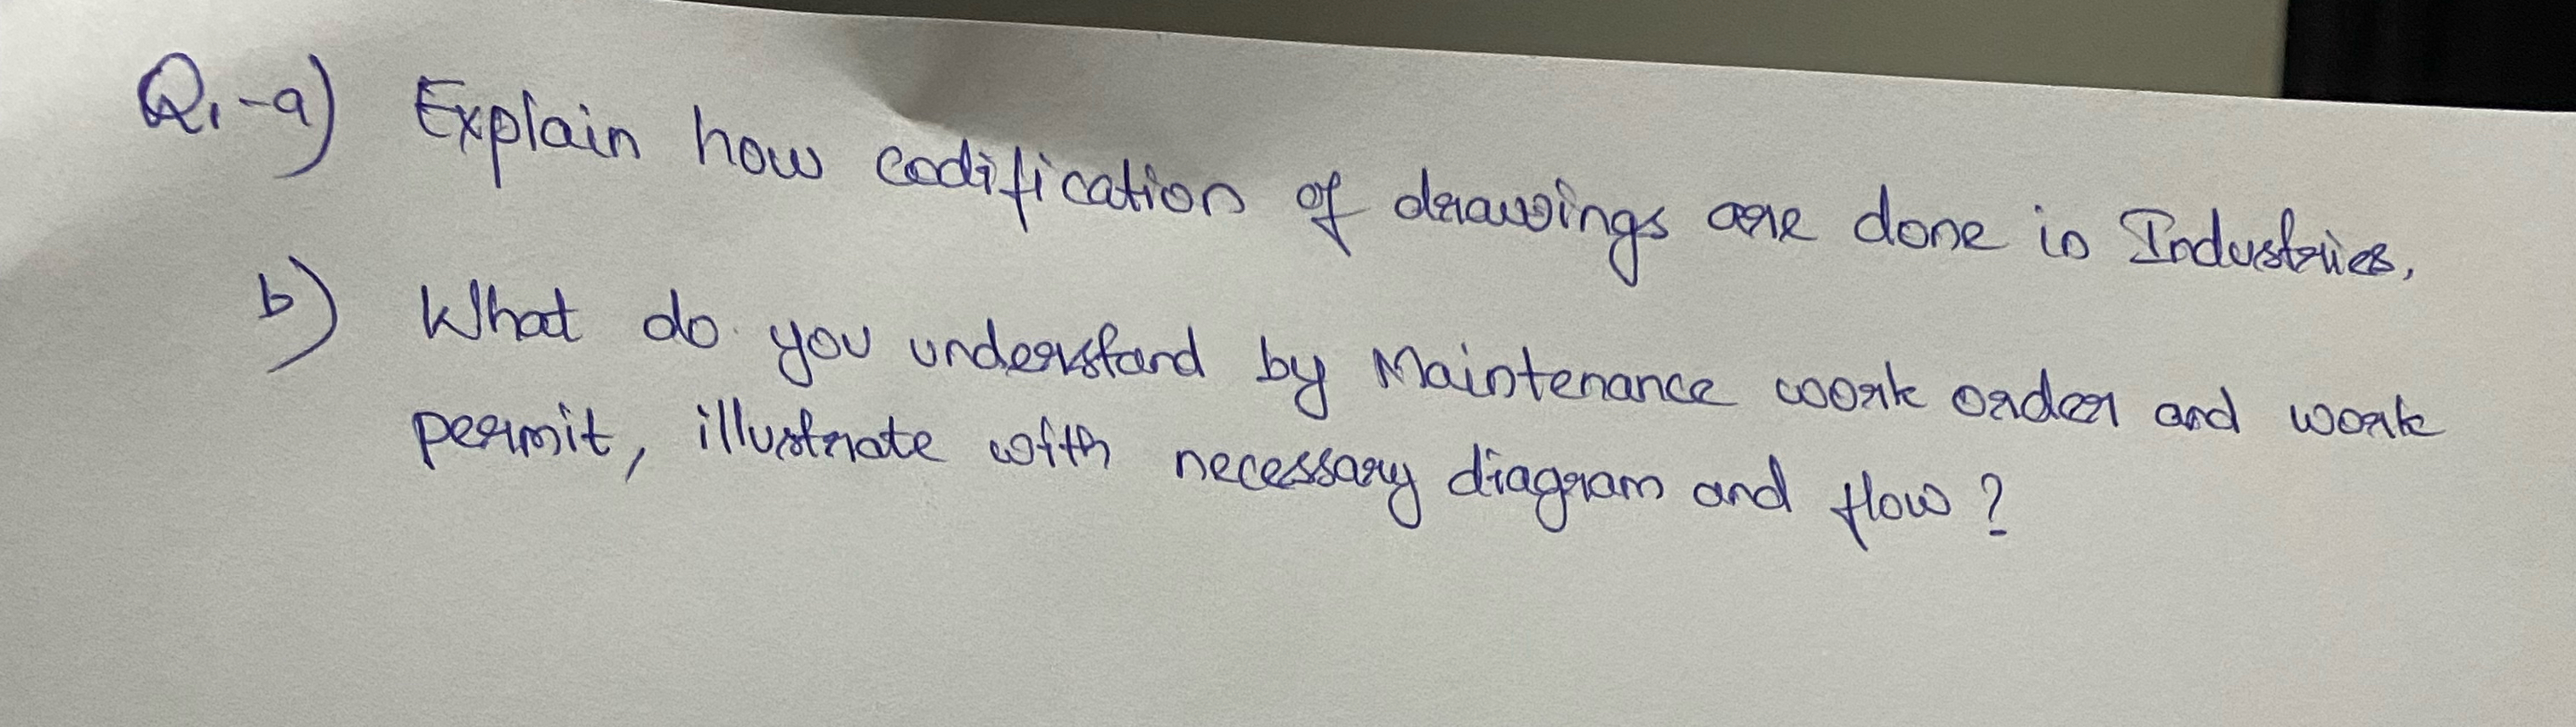 Q1-a) Explain how codification of drawings are done in Industries.
b) What do you understand by Maintenance work order and work
permit, illustrate with necessary diagram and flow?